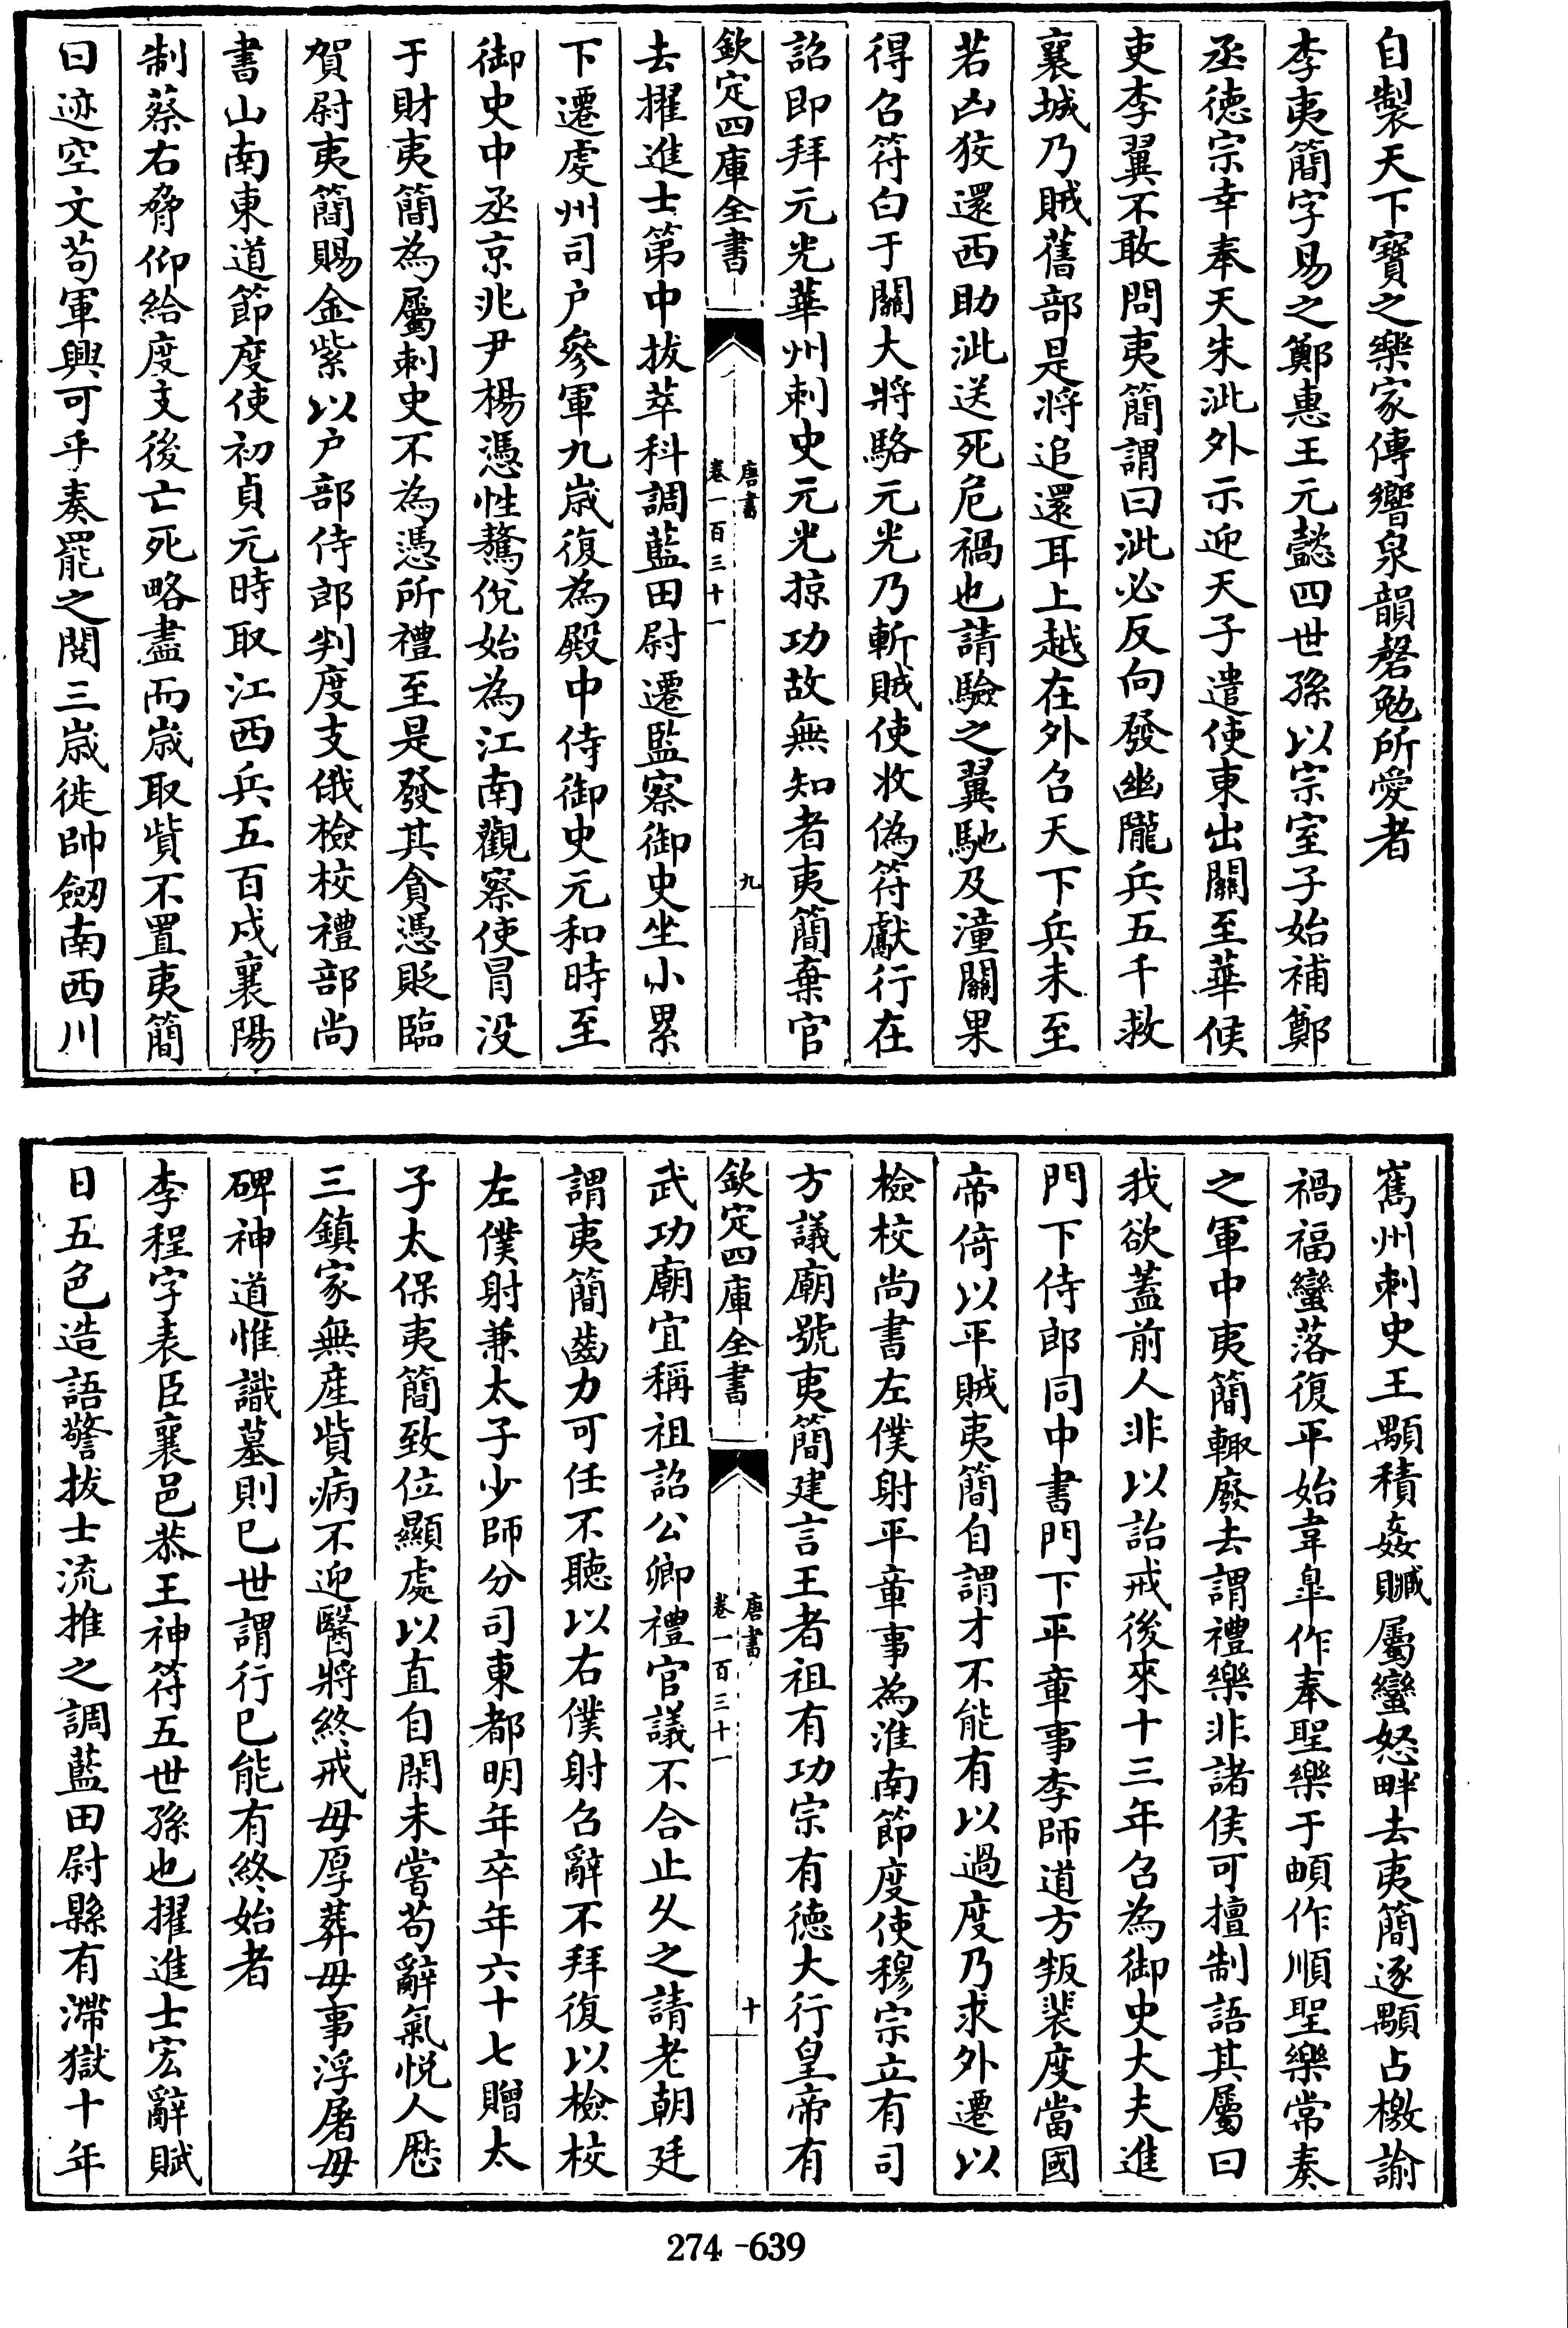 自製天下寶之樂家傳響泉韻磬勉所愛者
李夷簡字易之鄭惠王元懿四世孫以宗室子始補鄭
丞德宗幸奉天朱泚外示迎天子遣使東出關至華候
吏李翼不敢問夷簡謂曰泚必反向發幽隴兵五千救
襄城乃賊舊部是將追還耳上越在外召天下兵未至
若凶狡還西助泚送死危禍也請驗之翼馳及潼關果
得召符白于關大將駱元光乃斬賊使收偽符獻行在
詔即拜元光華州刺史元光掠功故無知者夷簡棄官
欽定四庫全書
唐書
卷一百三十一
九
去擢進士第中拔萃科調藍田尉遷監察御史坐小累
下遷虔州司户參軍九歲復為殿中侍御史元和時至
御史中丞京兆尹楊憑性驁侻始為江南觀察使冒没
于財夷簡為屬刺史不為憑所禮至是發其貪憑貶臨
賀尉夷簡賜金紫以户部侍郎判度支俄檢校禮部尚
書山南東道節度使初貞元時取江西兵五百戍襄陽
制蔡右脅仰給度支後亡死略盡而歲取貲不置夷簡
曰迹空文苟軍興可乎奏罷之閱三歲徙帥劒南西川
嶲州刺史王顒積姦贓屬蠻怒畔去夷簡逐顒占檄諭
禍福蠻落復平始韋臯作奉聖樂于頔作順聖樂常奏
之軍中夷簡輙廢去謂禮樂非諸侯可擅制語其屬曰
我欲蓋前人非以詒戒後來十三年召為御史大夫進
門下侍郎同中書門下平章事李師道方叛裴度當國
帝倚以平賊夷簡自謂才不能有以過度乃求外遷以
檢校尚書左僕射平章事為淮南節度使穆宗立有司
方議廟號夷簡建言王者祖有功宗有德大行皇帝有
欽定四庫全書
唐書
卷一百三十一
十
武功廟宜稱祖詔公卿禮官議不合止久之請老朝廷
謂夷簡齒力可任不聽以右僕射召辭不拜復以檢校
左僕射兼太子少師分司東都明年卒年六十七贈太
子太保夷簡致位顯處以直自閑未嘗苟辭氣悦人歷
三鎮家無産貲病不迎醫將終戒毋厚葬毋事浮屠毋
碑神道惟識墓則已世謂行已能有終始者
李程字表臣襄邑恭王神符五世孫也擢進士宏辭賦
日五色造語警拔士流推之調藍田尉縣有滯獄十年
274-639